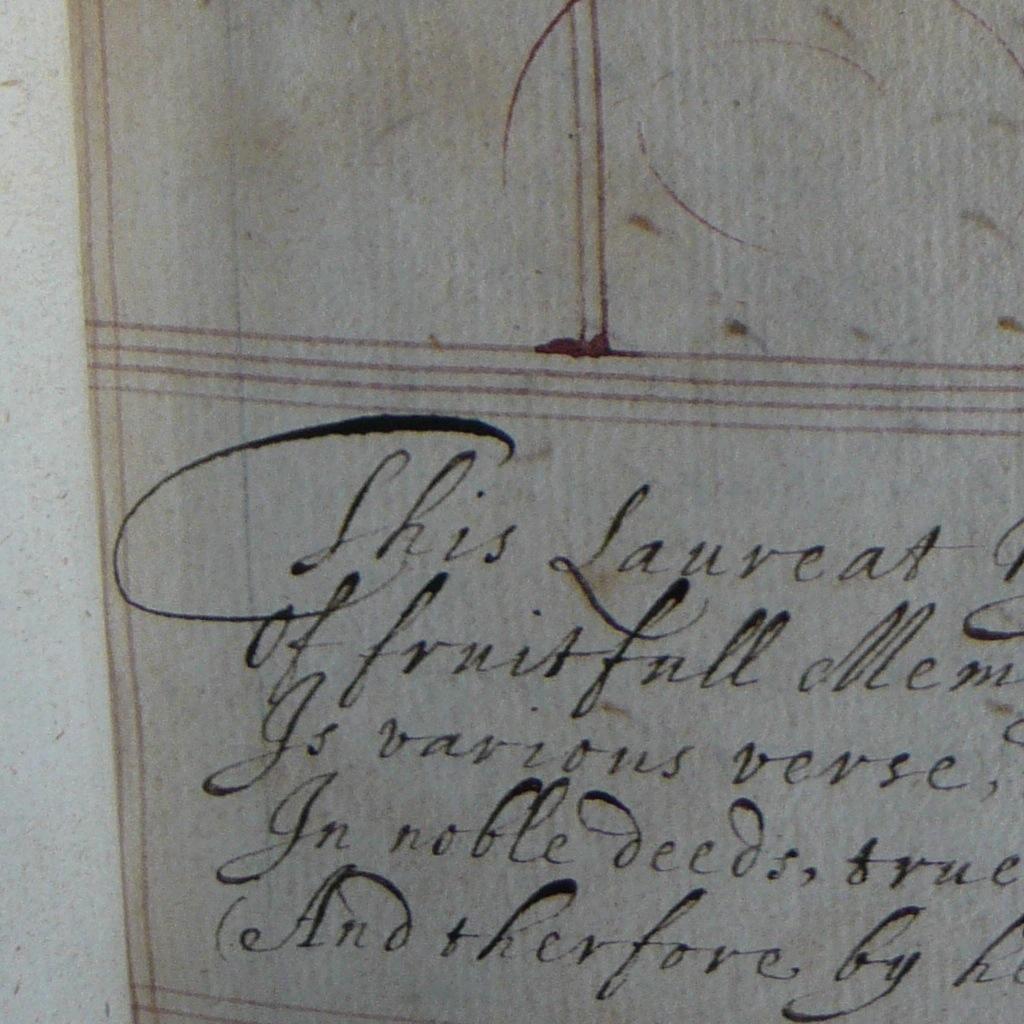 This Laureat
Of fruitfull
Is various verse,
In noble deeds, true
(And therfore by